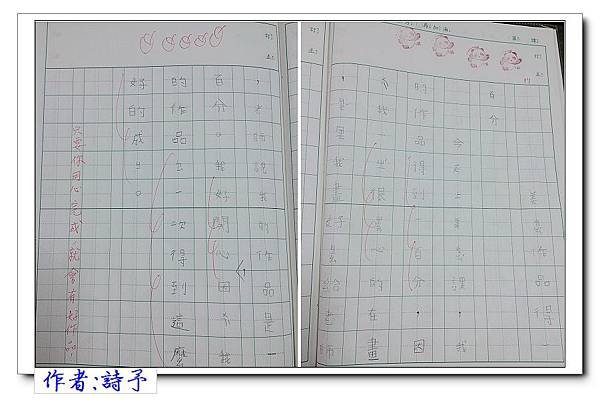 美勞作品得一
百分
今天上美勞課，我
的作品得到一百分，因
我一很專心的在畫
，是我畫好給老師
，老師說我的作品是一
百分。我好開心因為我
的作品一次得到這麼
好的成
只要你用心完成就會有好作品！
作者:詩予